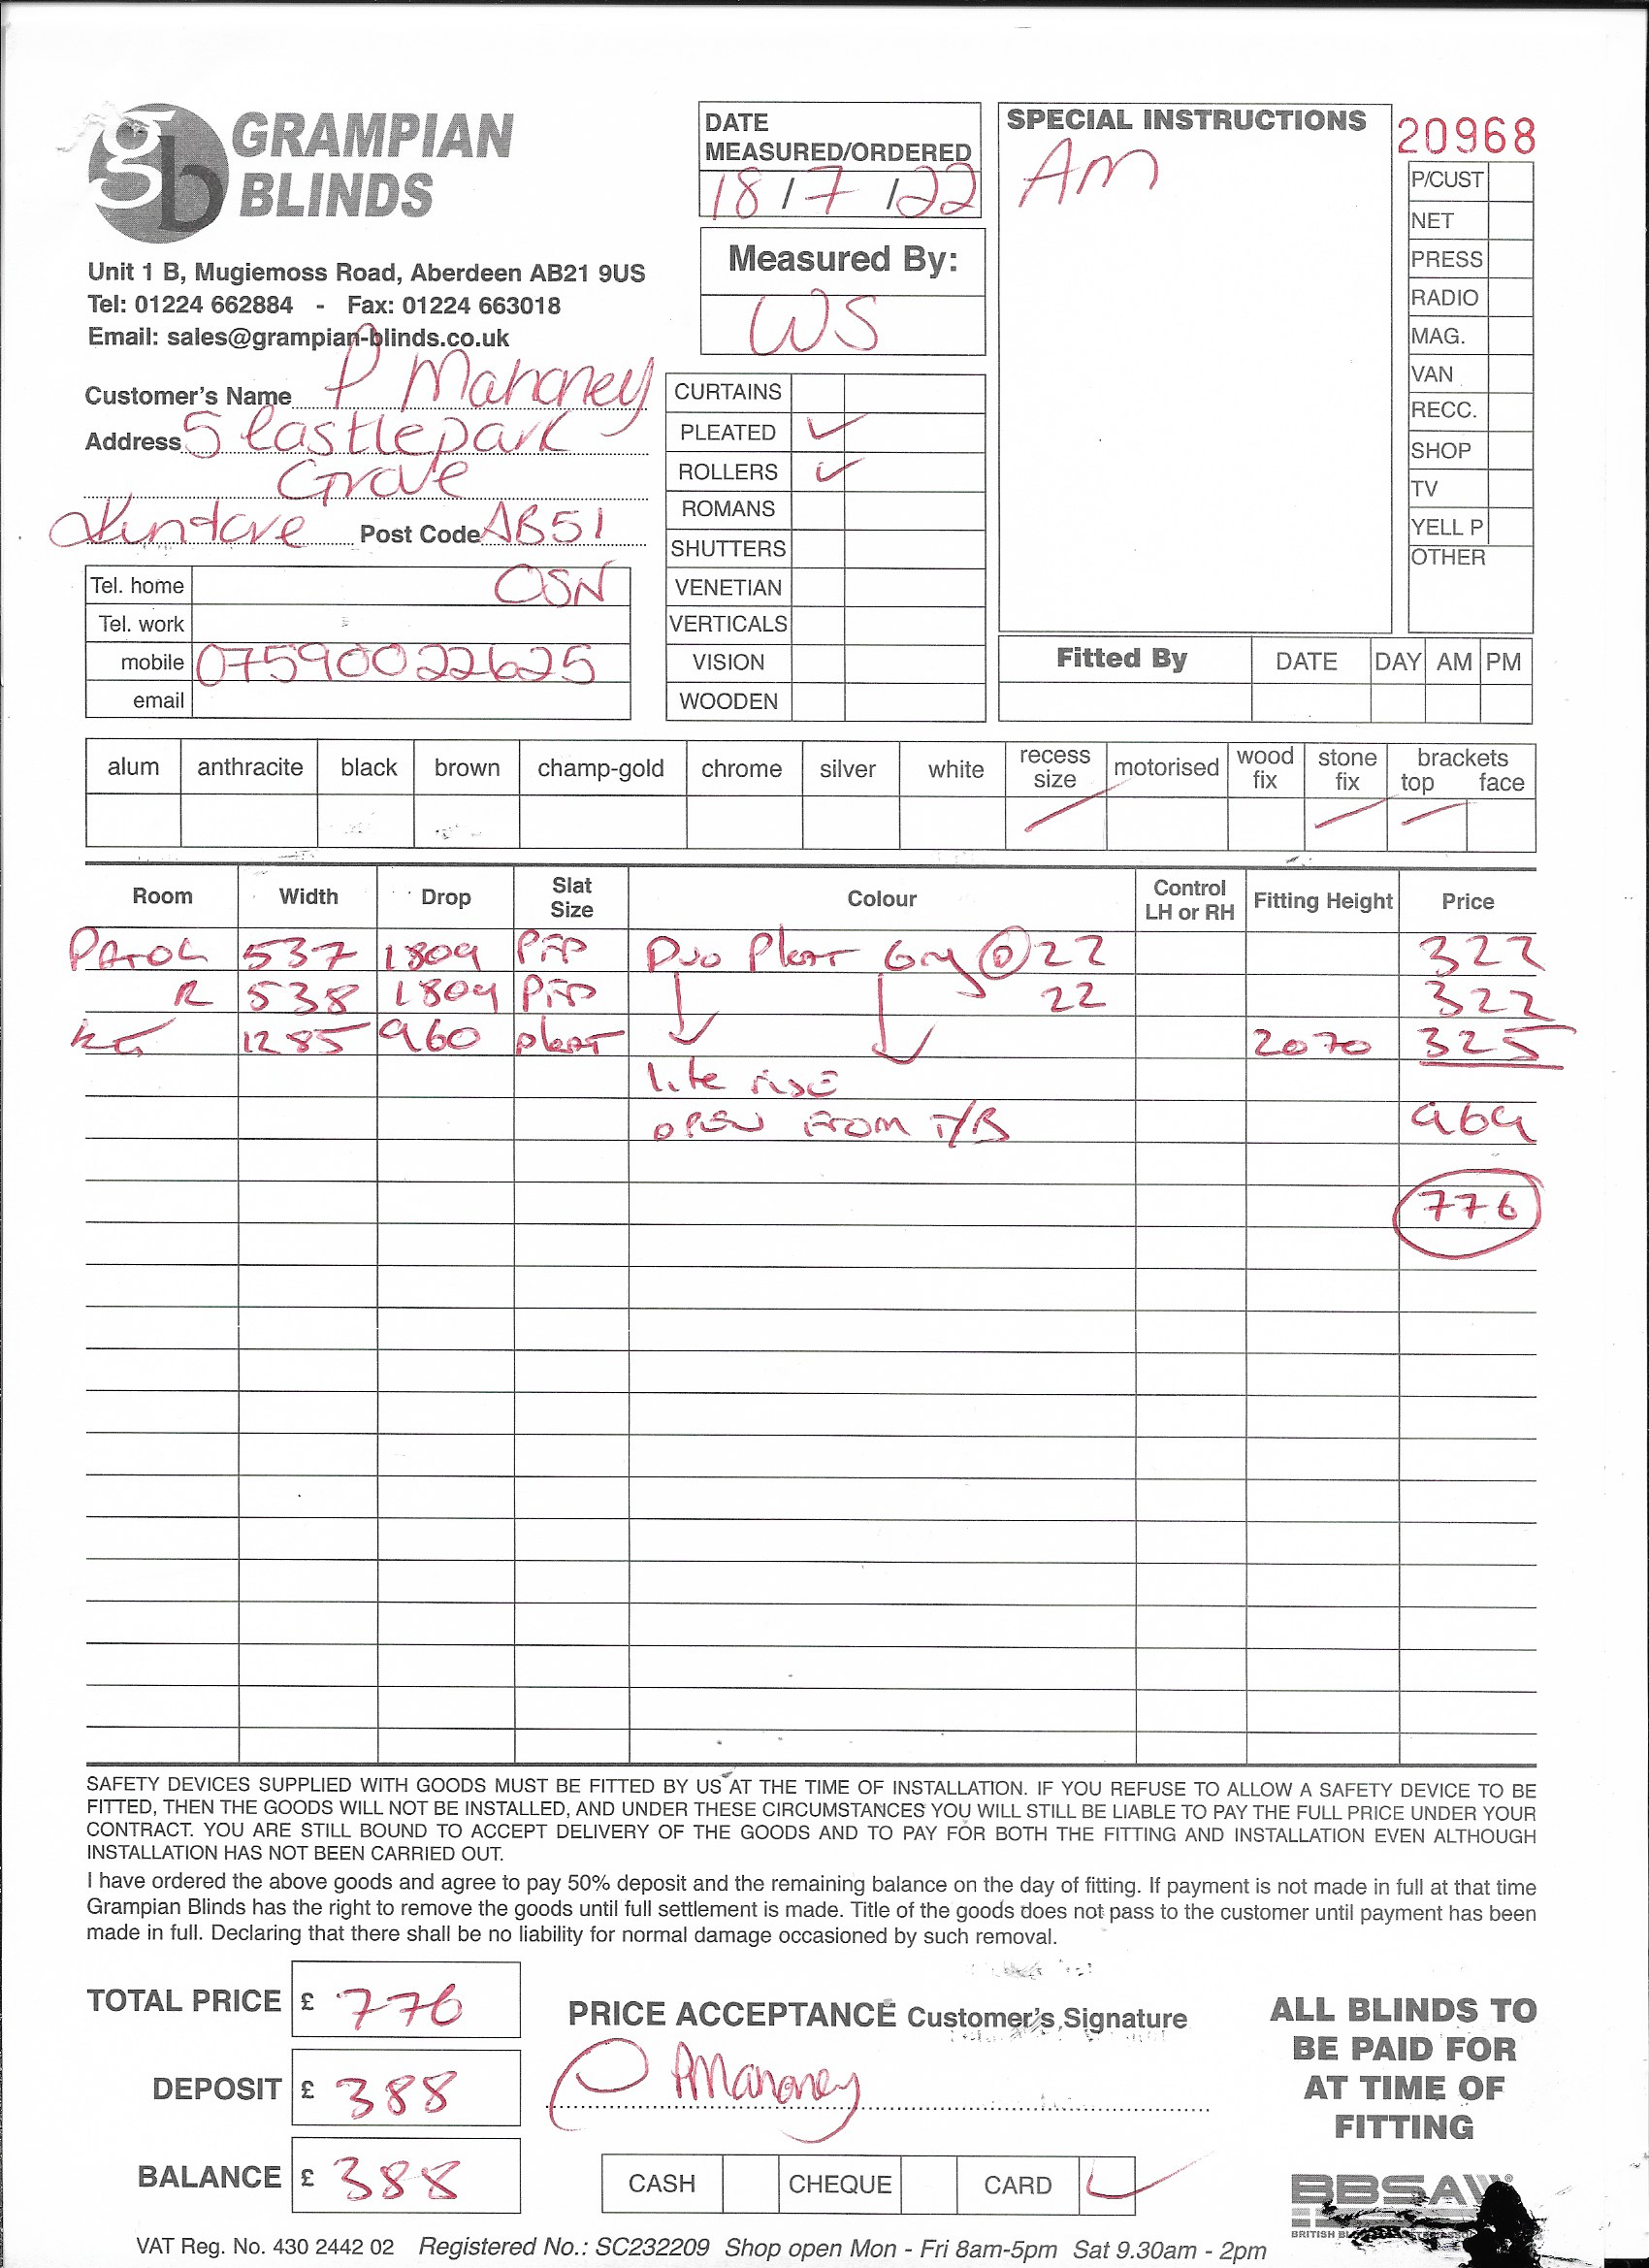 GRAMPIAN
BLINDS
Unit 1 B, Mugiemoss Road, Aberdeen AB21 9US
Tel: 01224 662884 - Fax: 01224 663018
Email: sales@grampian-blinds.co.uk
DATE
MEASURED/ORDERED
18/7/22
Measured By:
WS
SPECIAL INSTRUCTIONS
Am
20968
P/CUST
NET
PRESS
RADIO
MAG.
VAN
RECC.
SHOP
TV
YELL P
OTHER
Customer's Name P Mahoney
Address 5 Castlepark
Grove
Kintore Post Code AB51
0SN
Tel. home
Tel. work
mobile 07590022625
email
CURTAINS
PLEATED ✓
ROLLERS ✓
ROMANS
SHUTTERS
VENETIAN
VERTICALS
VISION
WOODEN
Fitted By DATE DAY AM PM
alum anthracite black brown champ-gold chrome silver white recess size motorised wood fix stone fix brackets top face
Room Width Drop Slat Size Colour Control LH or RH Fitting Height Price
537 1809 PFP Duo Pleat Gry @ 22 322
R 538 1809 PFP 22 322
Kt 1285 960 pleat 2070 325
lite rise
OPEN FROM T/B 969
776
SAFETY DEVICES SUPPLIED WITH GOODS MUST BE FITTED BY US AT THE TIME OF INSTALLATION. IF YOU REFUSE TO ALLOW A SAFETY DEVICE TO BE
FITTED, THEN THE GOODS WILL NOT BE INSTALLED, AND UNDER THESE CIRCUMSTANCES YOU WILL STILL BE LIABLE TO PAY THE FULL PRICE UNDER YOUR
CONTRACT. YOU ARE STILL BOUND TO ACCEPT DELIVERY OF THE GOODS AND TO PAY FOR BOTH THE FITTING AND INSTALLATION EVEN ALTHOUGH
INSTALLATION HAS NOT BEEN CARRIED OUT.
I have ordered the above goods and agree to pay 50% deposit and the remaining balance on the day of fitting. If payment is not made in full at that time
Grampian Blinds has the right to remove the goods until full settlement is made. Title of the goods does not pass to the customer until payment has been
made in full. Declaring that there shall be no liability for normal damage occasioned by such removal.
TOTAL PRICE £ 776
DEPOSIT £ 388
BALANCE £ 388
PRICE ACCEPTANCE Customer's Signature
P Mahoney
CASH CHEQUE CARD ✓
ALL BLINDS TO
BE PAID FOR
AT TIME OF
FITTING
BBSA
VAT Reg. No. 430 2442 02 Registered No.: SC232209 Shop open Mon - Fri 8am-5pm Sat 9.30am - 2pm